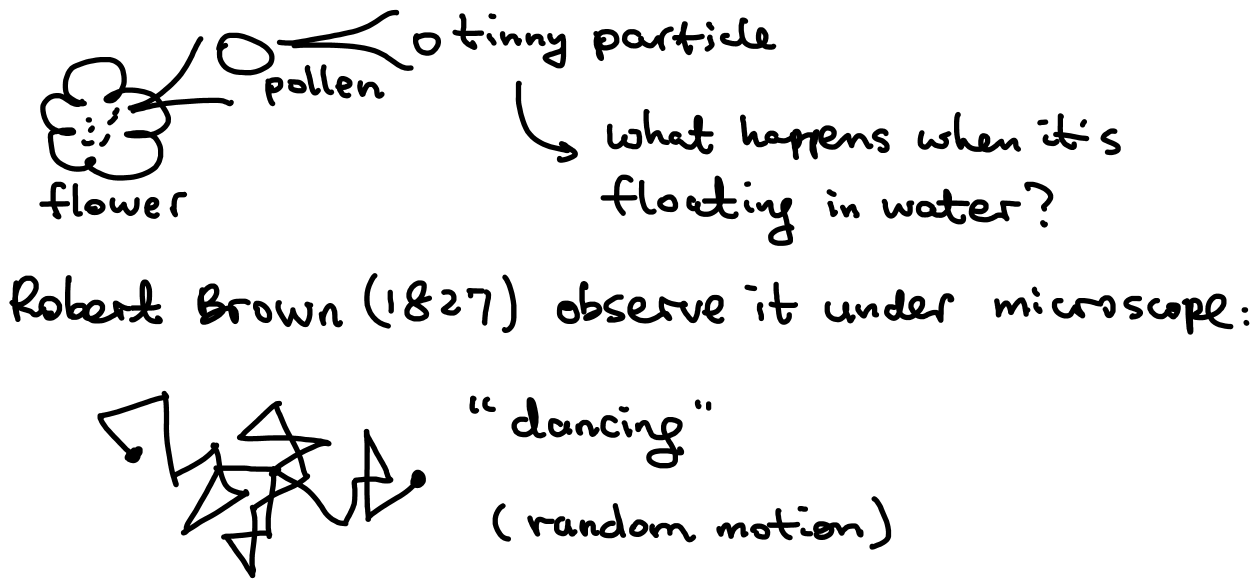 tinny particle
pollen
what happens when it's
flower
floating in water?
Robert Brown (1827) observe it under microscope:
"dancing"
(random motion)